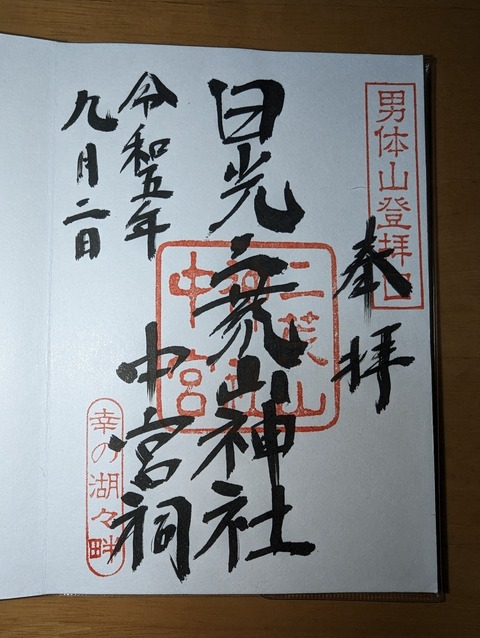 男体山登拝口
奉拝
日光二荒山神社
中宮祠
二荒山
神社
中宮
令和五年
九月二日
幸の湖々畔